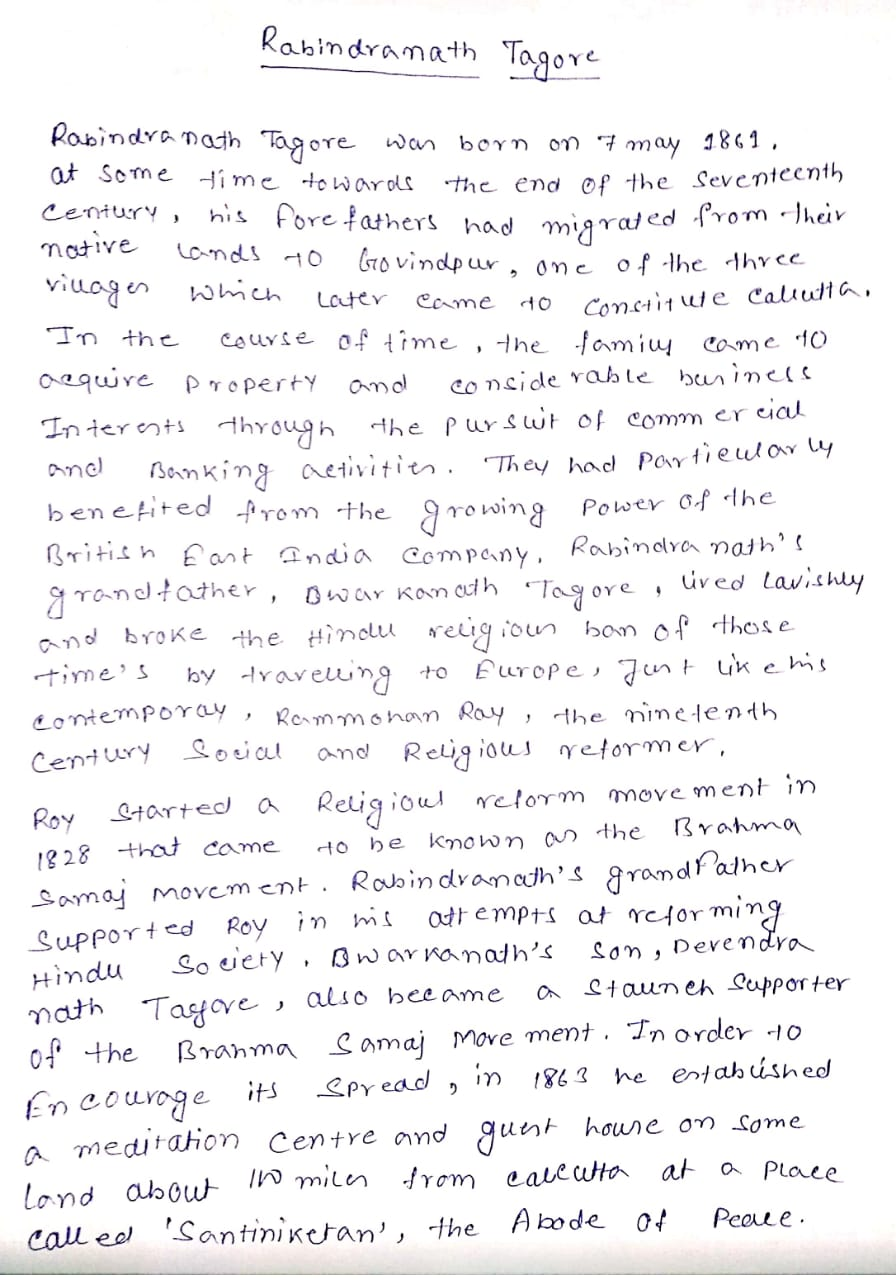 Rabindranath Tagore
Rabindranath Tagore was born on 7 may 1861.
at some time towards the end of the seventeenth
Century, his forefathers had migrated from their
native lands to Govindpur, one of the three
villages which later came to constitute Calcutta.
In the course of time, the family came to
acquire property and considerable business
Interests through the pursuit of commercial
and Banking activities. They had particularly
benefited from the growing power of the
British East India Company. Rabindranath's
grandfather, Dwarkanath Tagore, lived lavishly
and broke the Hindu religious ban of those
time's by travelling to Europe, Just like his
contemporay, Rammohan Ray, the ninetenth
Century Social and Religious reformer.
Roy started a Religious reform movement in
1828 that came to be known as the Brahma
Samaj Movement. Rabindranath's grandfather
Supported Roy in his attempts at reforming
Hindu Society. Dwarkanath's son, Devendra
nath Tagore, also became a staunch supporter
of the Brahma Samaj Movement. In order to
Encourage its spread, in 1863 he established
a meditation centre and guest house on some
land about 100 miles from calcutta at a place
called 'Santiniketan', the Abode of Peace.